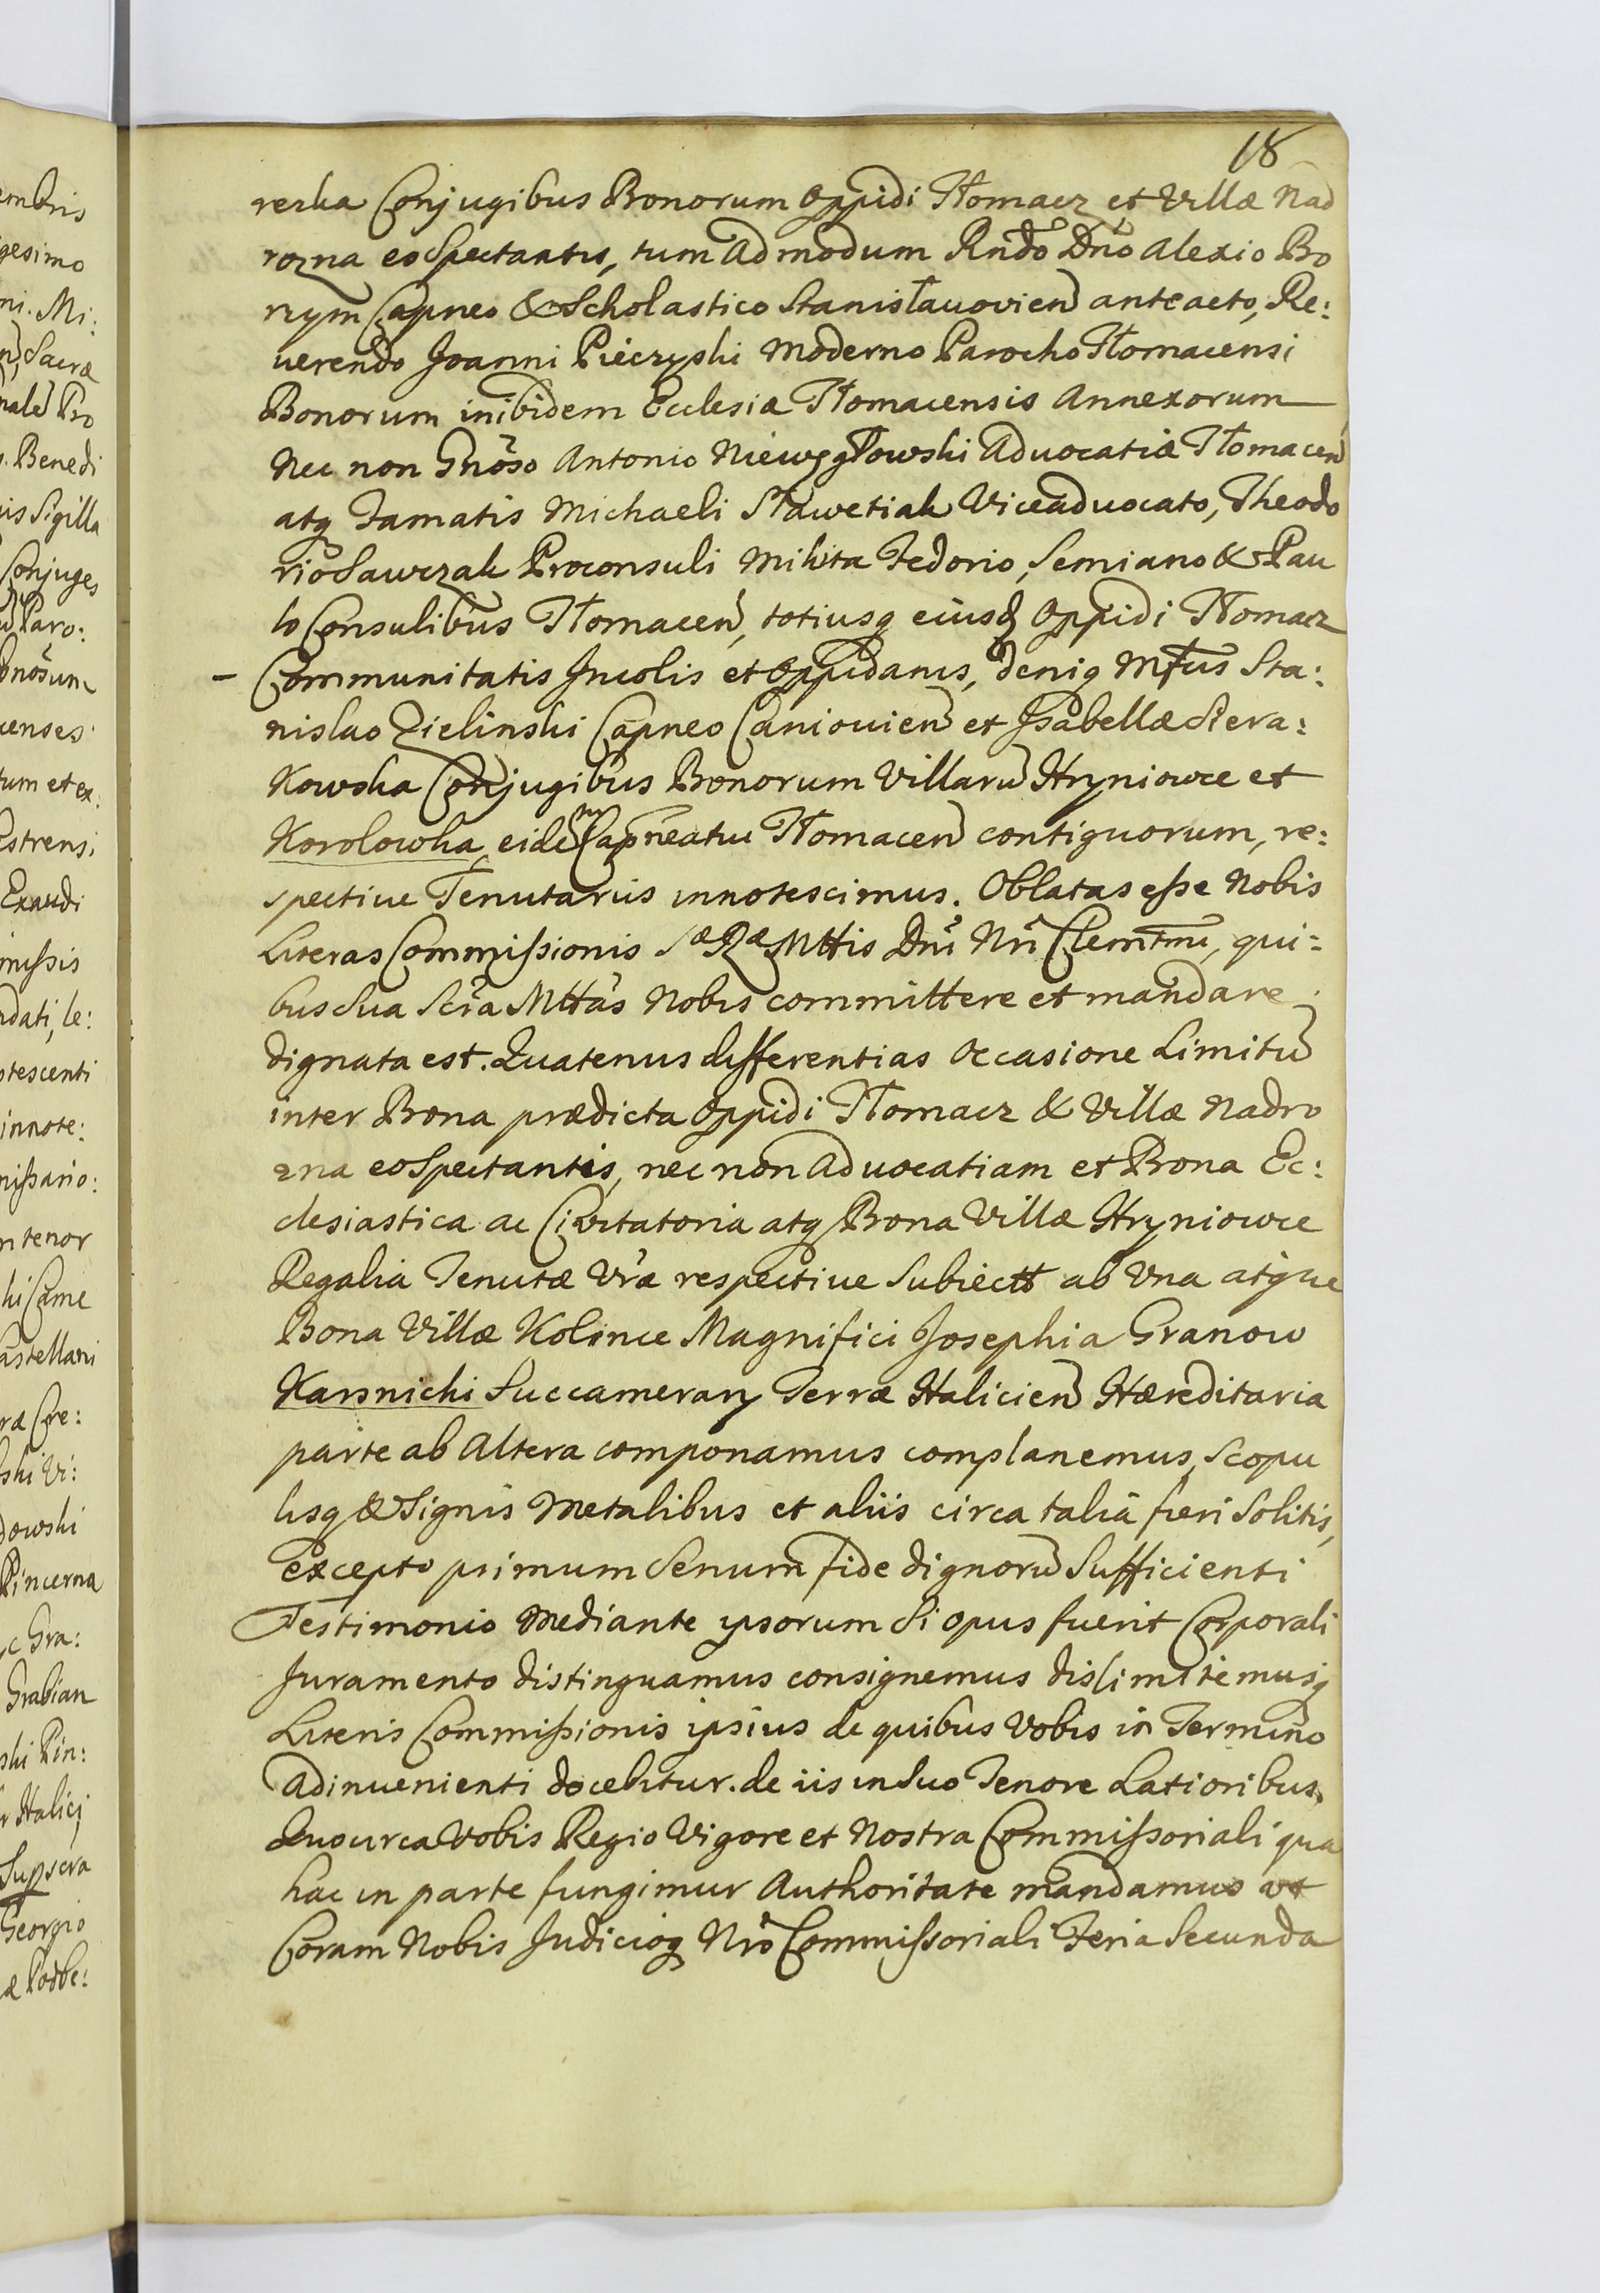 18
rerka Conjugibus Bonorum Oppidi Tłomacz et Villæ Nad
rozna eo Spectantis, tum Admodum Rndo Dno Alexio Bo
rzym Capneo & Scholastico Stanisławovien anteacto, Re:
uerendo Joanni Pieczyski Moderno Parocho Tłomacensi
Bonorum inibidem Ecclesiæ Tłomacensis Annexorum
Nec non Gnoso Antonio Niewęgłowski Aduocatiæ Tłomacen
atq Famatis Michaeli Sławetiak Viceaduocato, Theodo
rio Sawczak Proconsuli Mikita Fedorio, Semiano & Pau
lo Consulibus Tłomacen, totiusq eiusd Oppidi Tłomacz
– Communitatis Incolis et Oppidanis, deniq Mfcus Sta:
nislao Zielinski Capneo Caniouien et Isabellæ Siera:
Kowska Conjugibus Bonorum Villaru Hryniowce et
Korolowka, eidem Capneatui Tłomacen contiguorum, re:
spectiue Tenutariis innotescimus. Oblatas esse Nobis
Literas Commissionis Sæ Ræ Mttis Dni Nri Clemtmi, qui:
bus Sua Scra Mttas Nobis committere et mandare
dignata est. Quatenus differentias Occasione Limitu
inter Bona prædicta Oppidi Tłomacz & Villæ Nadro
zna eo Spectantis, nec non Aduocatiam et Bona Ec:
clesiastica ac Civitatoria atq Bona Villæ Hryniowce
Regalia Tenutæ Vræ respectiue Subiectt ab Vna atque
Bona Villæ Kolince Magnifici Josephi a Granow
Karsnicki Succamerarij Terræ Halicien Hæreditaria
parte ab Altera componamus complanemus, Scopu
lisq & Signis Metalibus et aliis circa talia fieri Solitis,
excepto primum Senum fide dignoru Sufficienti
Testimonio Mediante ipsorum Si opus fuerit Corporali
Juramento distinguamus consignemus dislimitemusq
Literis Commissionis ipsius de quibus Vobis in Termino
Adinuenienti docebitur. de iis in Suo Tenore Latioribus.
Quocirca Vobis Regio Vigore et Nostra Commissoriali qua
hac in parte fungimur Authoritate mandamus ut
Coram Nobis Judicioq Nro Commissoriali Feria Secunda